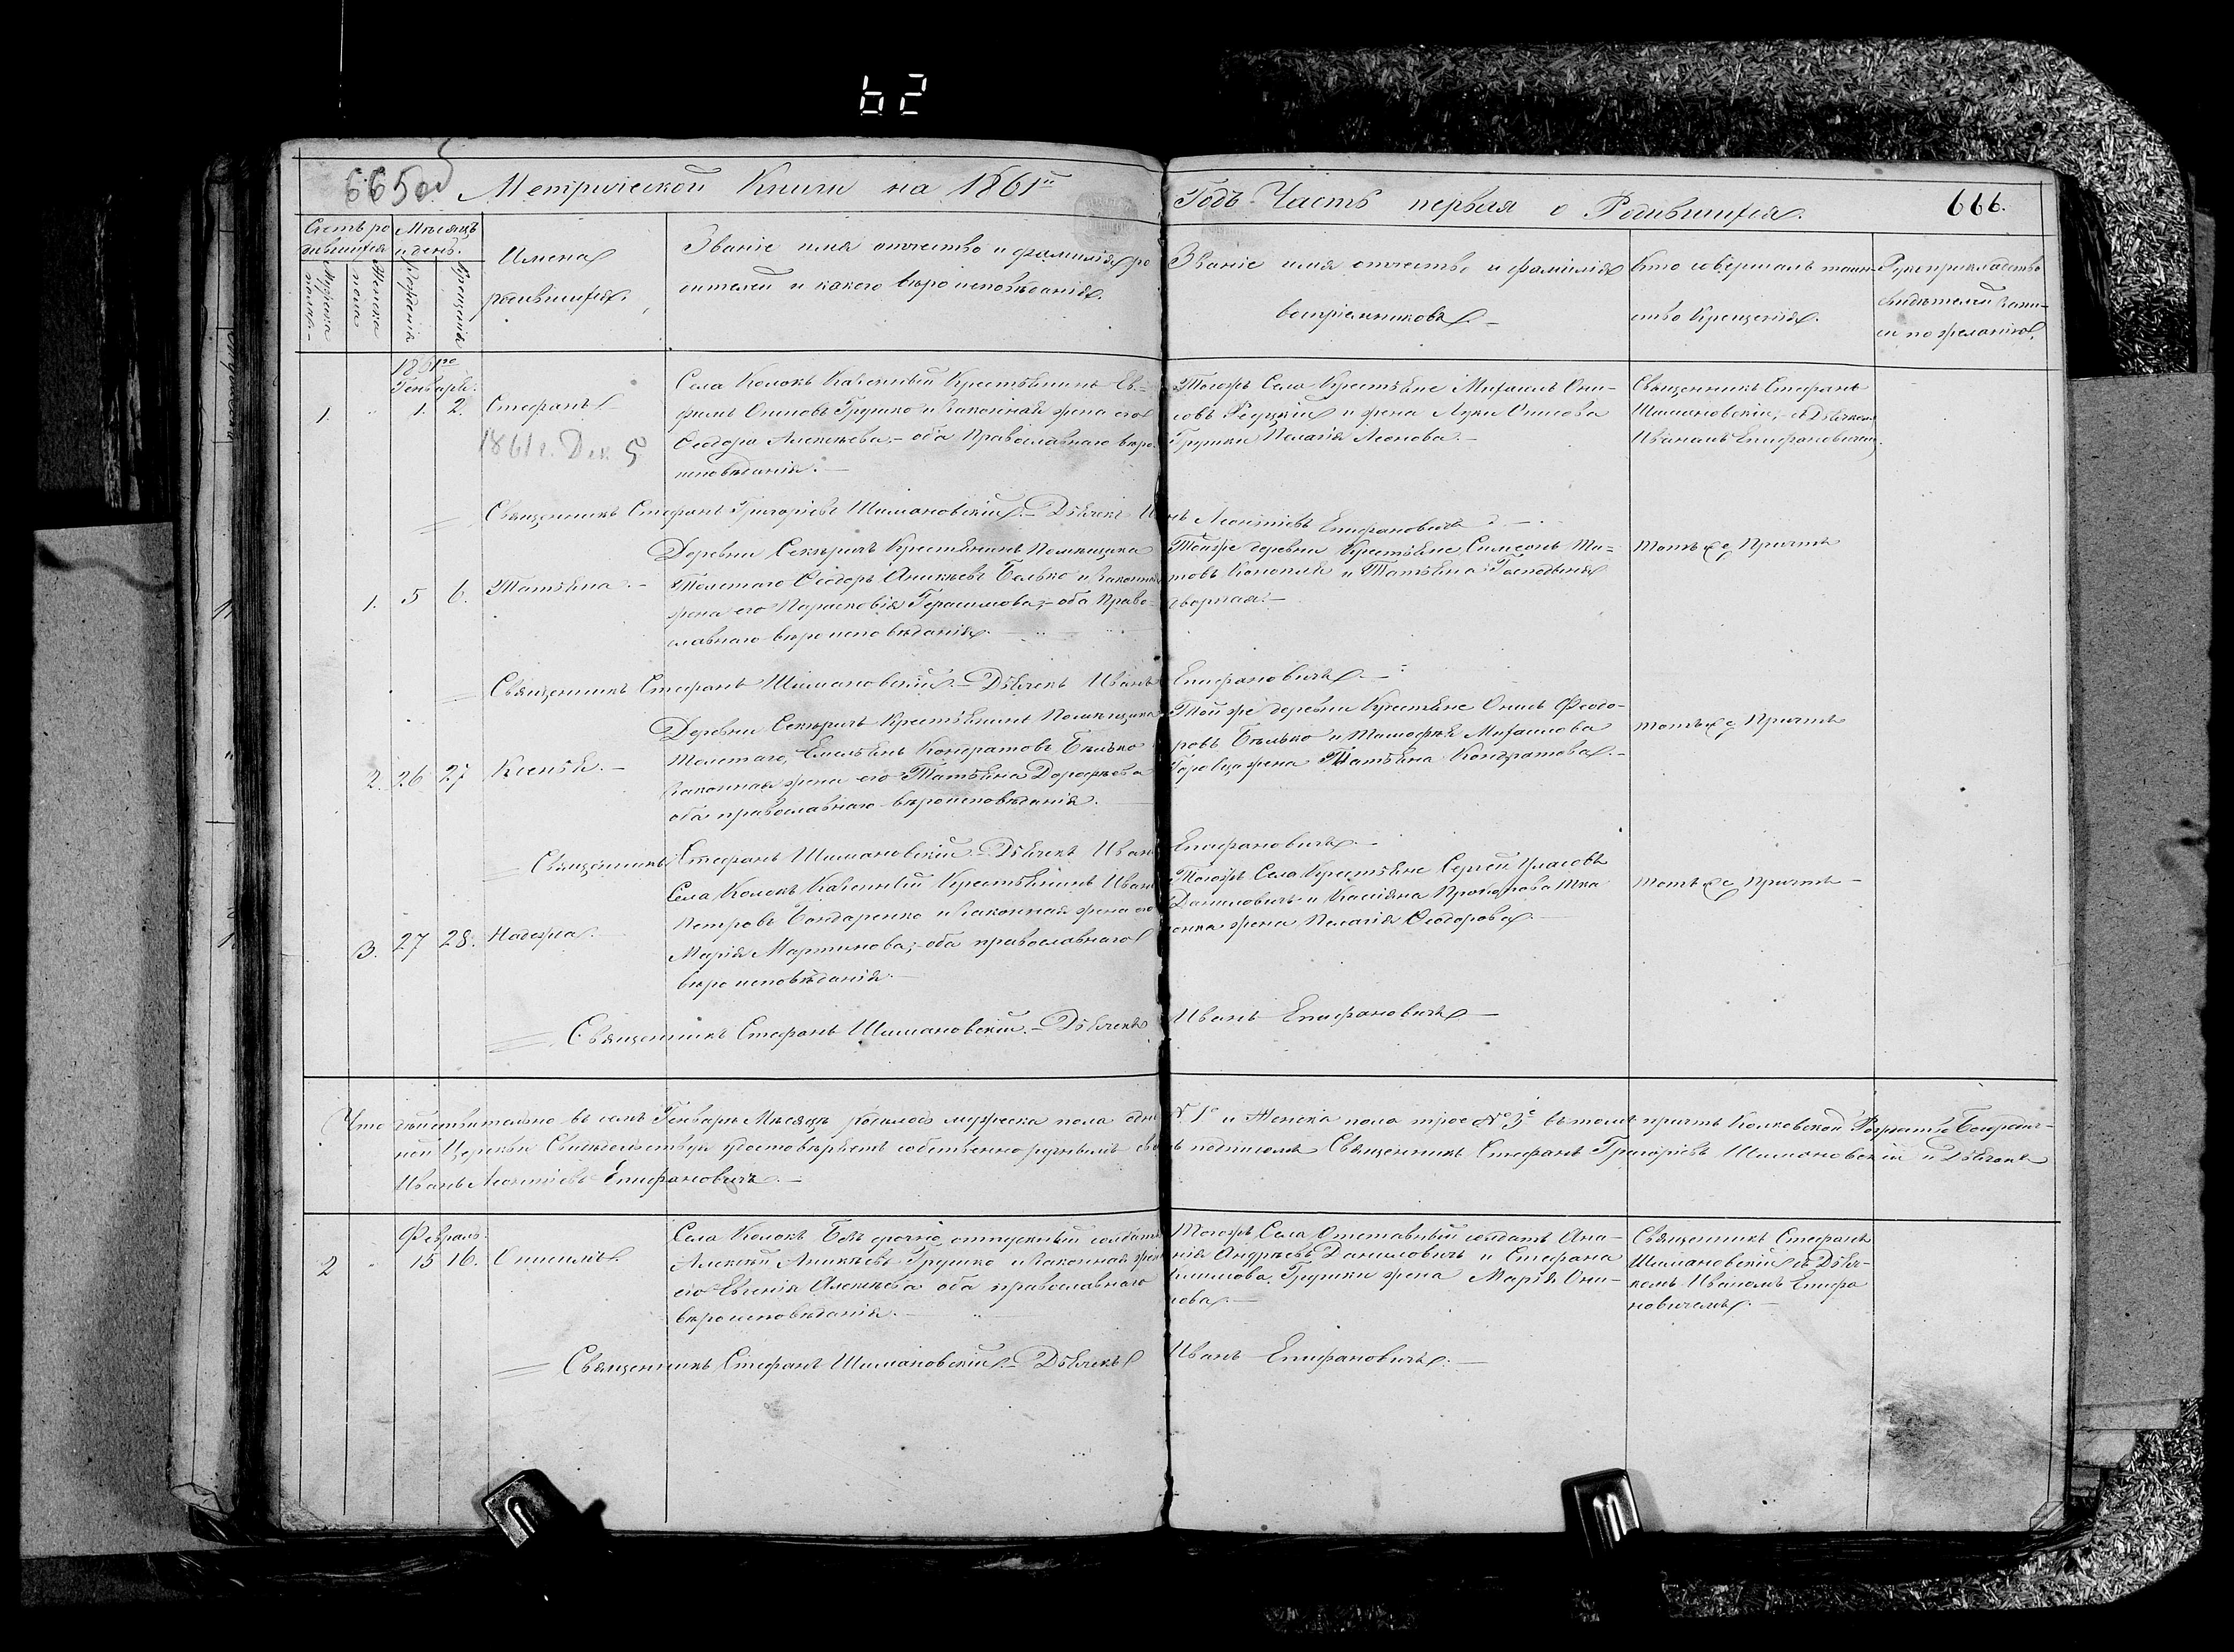 62
665
Метрической Книги на 1861й
Годъ Часть первая о Родившихся.
666.
Счетъ ро
дившихся
Мѣсяцъ
и день.
Мужска
пола
Женска
пола
Рожденія
Крещенія
Имена
родившихся.
Званіе имя отчество и фамилія ро
дителей и какого вѣроисповѣданія.
Званіе имя отчество и фамилія
воспріемниковъ.
Кто совершалъ таин-
ство Крещенія.
Рукоприкладство
свидѣтелей запи-
си по желанію.
1861го
Генваря:
1. " 1. 2. Стефанъ
1861 г. Дек. 5
Села Колокъ Казенный Крестьянинъ Ев-
фимъ Онисовъ Грушко и законная жена его
Феодора Алексѣева, - оба Православнаго вѣро
исповѣданія. -
Тогожъ Села Крестьяне Михаилъ Они-
совъ и жена Луки Онисова
Грушки Пелагія Леонова. -
Священникъ Стефанъ
Шимановскій, - съ Дьячкомъ
Иваномъ Епифановичемъ.
Священникъ Стефанъ Григоріевъ Шимановскій. - Дьячекъ Иванъ Леонтіевъ Епифановичъ
1. 5 6. Татьяна. -
Деревни Секъричъ Крестьянинъ Помѣщика
Толстаго Феодоръ Аникѣевъ Бѣлько и Законная
жена его Парасковія Герасимова, - оба Право-
славнаго вѣроисповѣданія.
Тойже деревни Крестьяне Симеонъ Ти-
товъ Конопля и Татьяна
дворная. -
Тотъ же Причтъ
Священникъ Стефанъ Шимановскій. - Дьячекъ Иванъ Епифановичъ. -
2. 26 27 Ксенія. -
Деревни Секъричъ Крестьянинъ Помѣщика
Толстаго, Емельянъ Кондратовъ Бѣлько
Законная жена его Татьяна Дорофѣева
оба православнаго вѣроисповѣданія.
Той же деревни Крестьяне Онисъ Феодо-
ровъ Бѣлько и Тимофѣя Михаилова
жена Татьяна Кондратова. -
тотъ же Причтъ
Священникъ Стефанъ Шимановскій. - Дьячекъ Иванъ Епифановичъ. -
3. 27 28. Надежда.
Села Колокъ Казенный Крестьянинъ Иванъ
Петровъ Бондаренко и законная жена его
Марія Мартинова, - оба православнаго
вѣроисповѣданія. -
Тогожъ Села Крестьяне Сергей Уласовъ
Даниловичъ и Касіяна Прокопова Тка
ченка жена Пелагія Феодорова. -
тотъ же Причтъ -
Священникъ Стефанъ Шимановскій. - Дьячекъ Иванъ Епифановичъ -
Что дѣйствительно въ семъ Генваръ Мѣсяцъ родилось мужеска пола № 1й и Женска пола трое № 3й въ томъ причтъ Колковской Рождество Богородич-
ной Церкви Свидѣтельствуя удостовѣряетъ собственно ручнымъ подписомъ Священникъ Стефанъ Григоріевъ Шимановскій и Дьячекъ
Иванъ Леонтіевъ Епифановичъ. -
Февраль.
2 " 15 16. Онисимъ.
Села Колокъ Безсрочно отпускный солдатъ
Алексѣй Аникѣевъ Грушко и законная жена
его Евгенія Алексѣева оба православнаго
вѣроисповѣданія. -
Тогожъ Села Отставный солдатъ Ана-
нія Андрѣевъ Даниловичъ и Стефана
Климова Грушки жена Марія Они-
сова. -
Священникъ Стефанъ
Шимановскій съ Дьяч-
комъ Иваномъ Епифа
новичемъ. -
Священникъ Стефанъ Шимановскій. - Дьячекъ Иванъ Епифановичъ. -